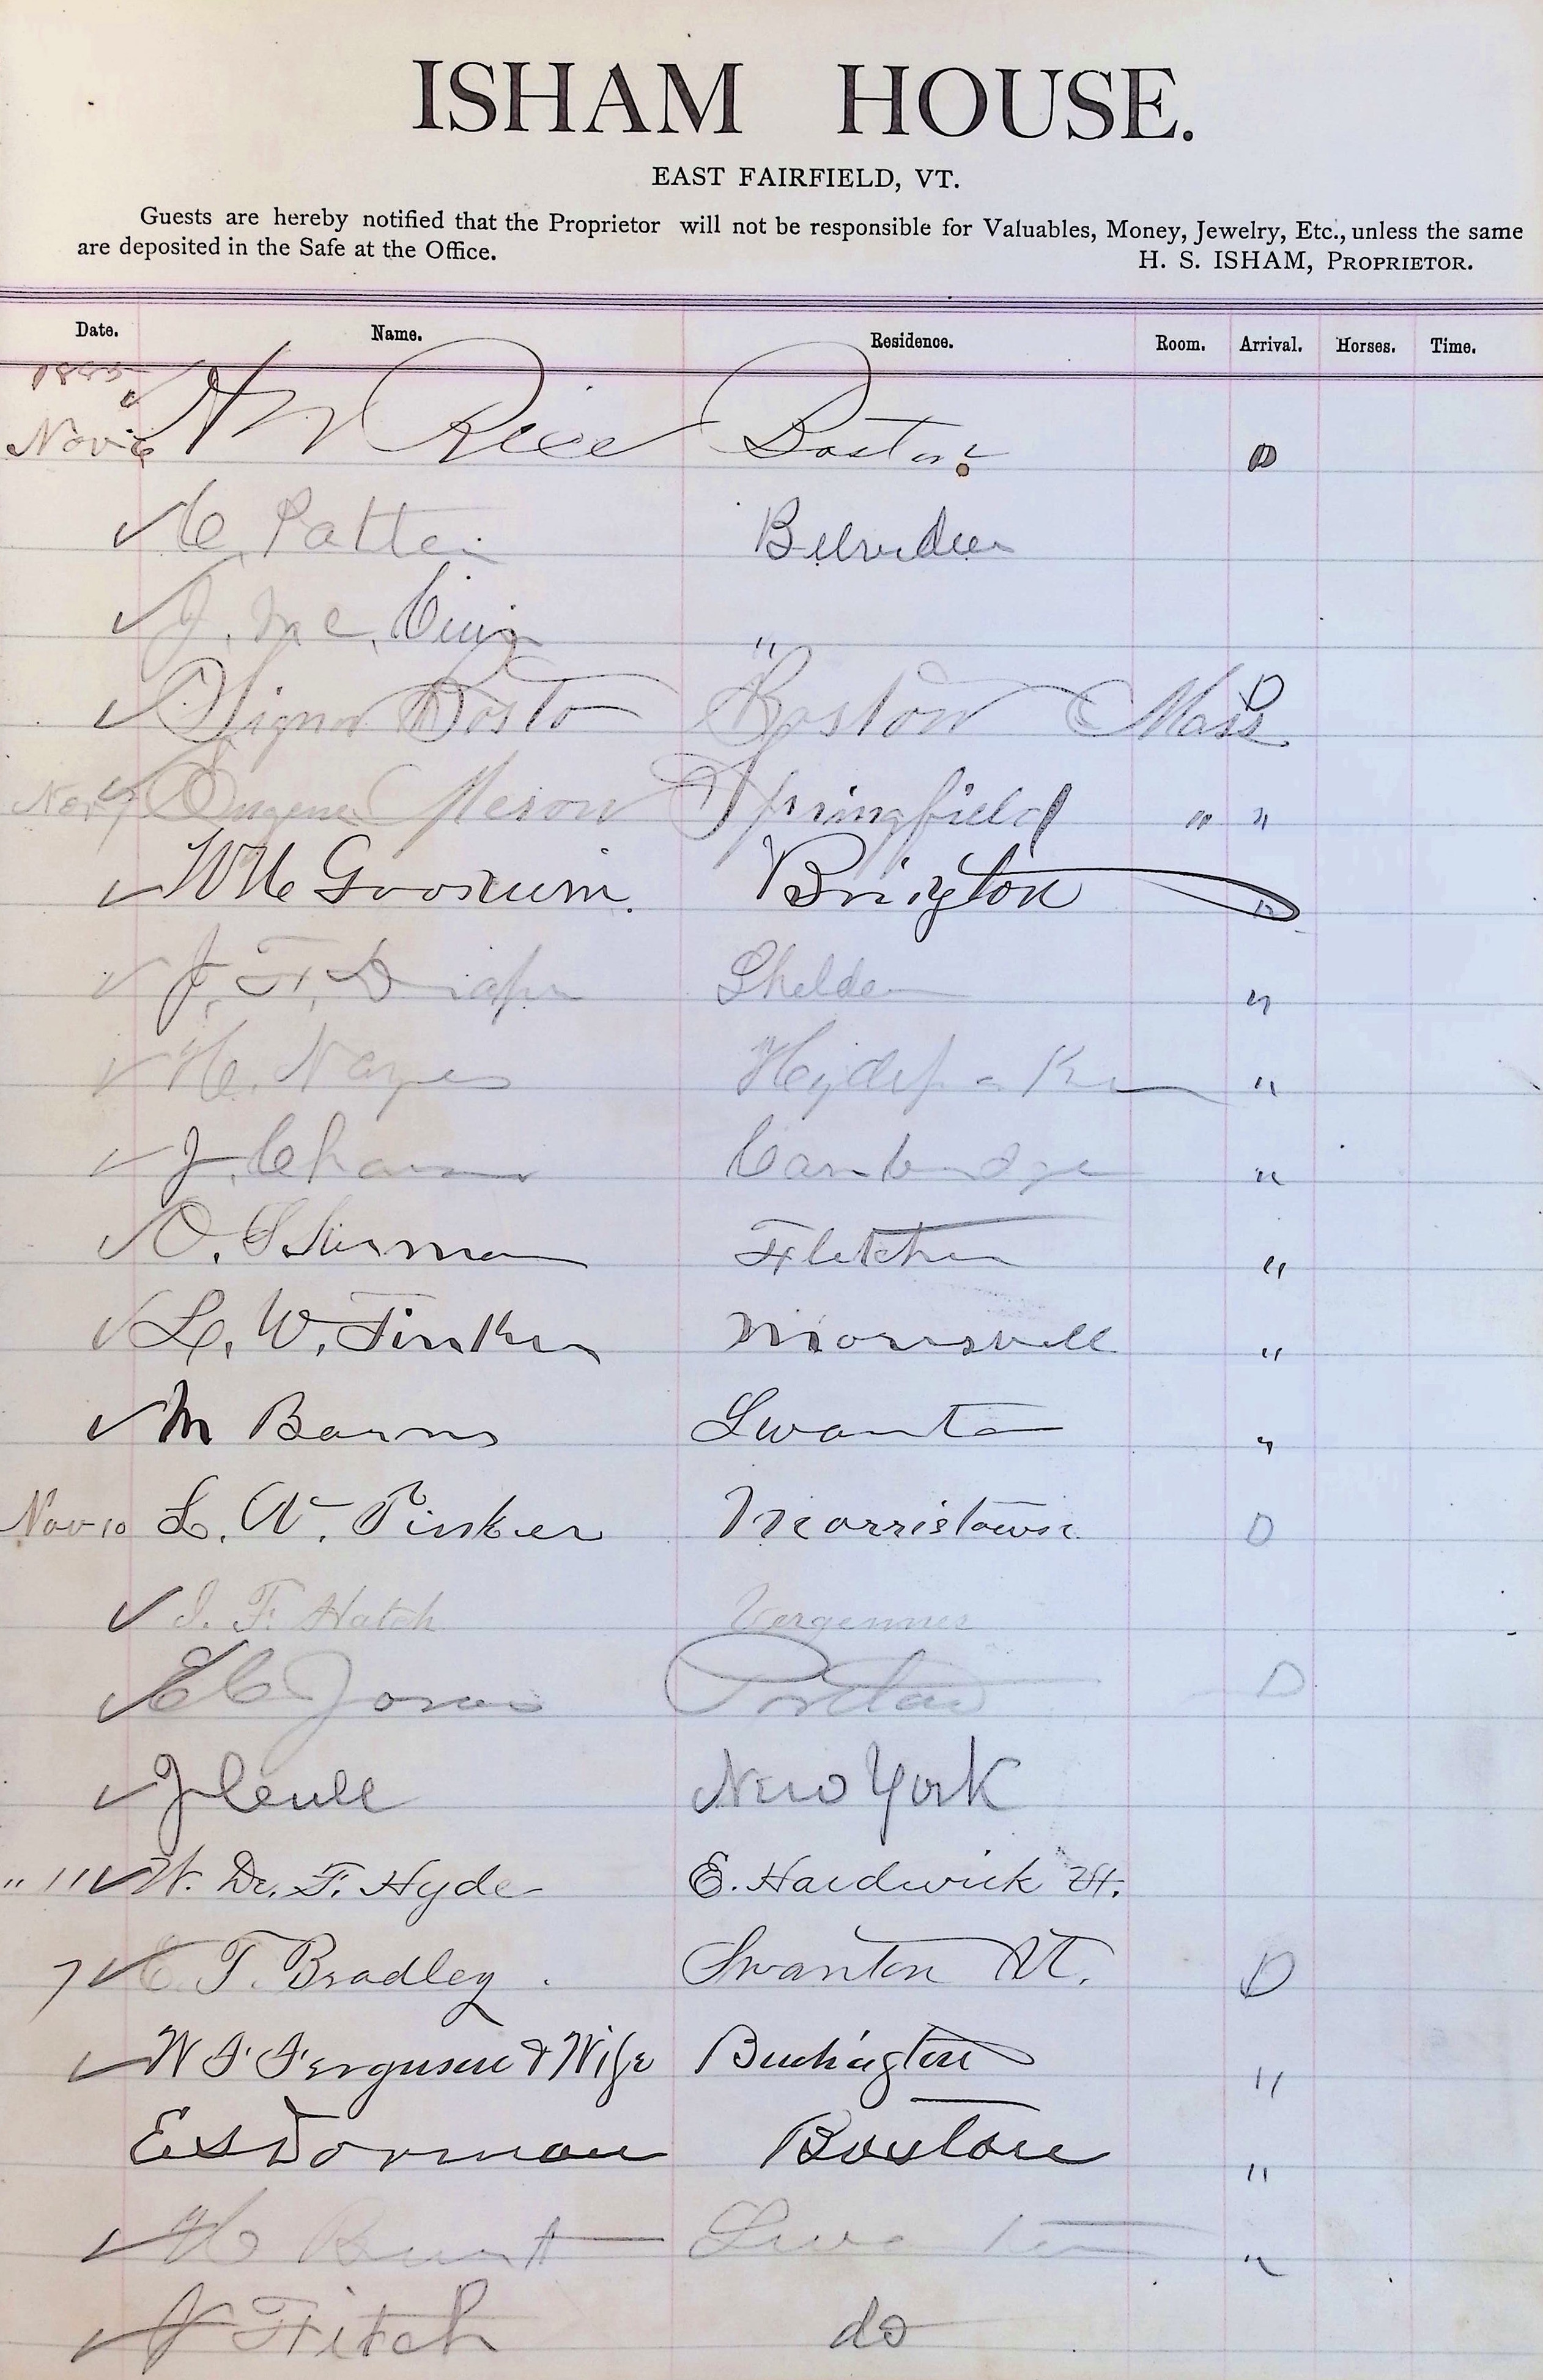 ISHAM HOUSE.
EAST FAIRFIELD, VT.
Guests are hereby notified that the Proprietor will not be responsible for Valuables, Money, Jewelry, Etc., unless the same
are deposited in the Safe at the Office.
H. S. ISHAM, PROPRIETOR.
Date. Name. Residence. Room. Arrival. Horses. Time.
1885
Nov 6 Rice Boston D
C. Patten Belvidere
J. Mc. "
Signor Bosto Boston Mass D
Nov 7 Eugene Meson Springfield " "
Goodwin. Brigton "
J. F. Draper Sheldon "
H. Nayes Hydepark "
J. Chase Cambridge "
O. Sherman Fletcher "
L. W. Tinker Morrisvill "
M Barns Swanton "
Nov 10 L. W. Tinker Morristown D
J. F. Hatch Vergennes
Jones Portland D
New York
" 11 W. De. F. Hyde E. Hardwick Vt.
C. T. Bradley. Swanton Vt. D
W F Ferguson & Wife Burlington "
E S Dorman Boston "
H Burt Swanton "
Fitch do